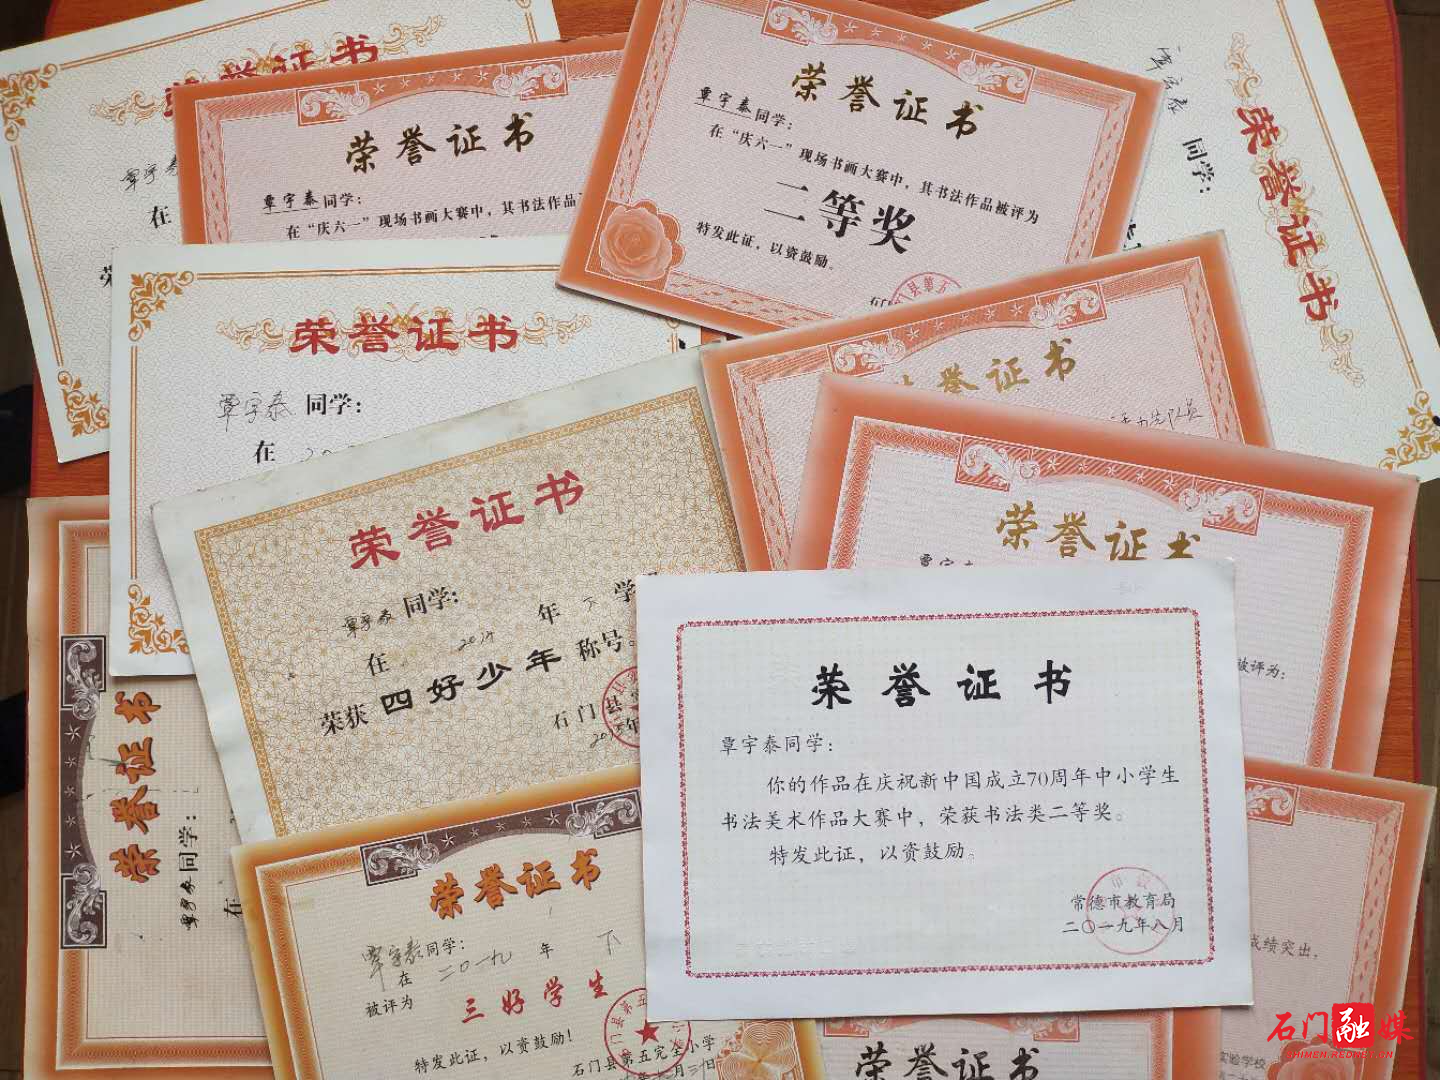 荣誉证书
覃宇泰
在
荣誉证书
覃宇泰同学：
在“庆六一”现场书画大赛中，其书法作品
荣誉证书
覃宇泰同学：
在“庆六一”现场书画大赛中，其书法作品被评为
二等奖
特发此证，以资鼓励。
荣誉证书
覃宇泰 同学：
荣誉证书
覃宇泰 同学：
在
荣誉证书
荣誉证书
覃宇泰同学：
在 2014 年 下 学
荣获 四好少年 称号。
石门县
荣誉证书
被评为：
荣誉证书
覃宇泰同学：
在
荣誉证书
覃宇泰同学：
在 二〇一九 年 下
被评为 三好学生
特发此证，以资鼓励！
石门县第五完全小学
荣誉证书
覃宇泰同学：
你的作品在庆祝新中国成立70周年中小学生
书法美术作品大赛中，荣获书法类二等奖。
特发此证，以资鼓励。
常德市教育局
二〇一九年八月
成绩突出，
实验学校
荣誉证书
石门融媒
SHIMEN.REDNET.CN